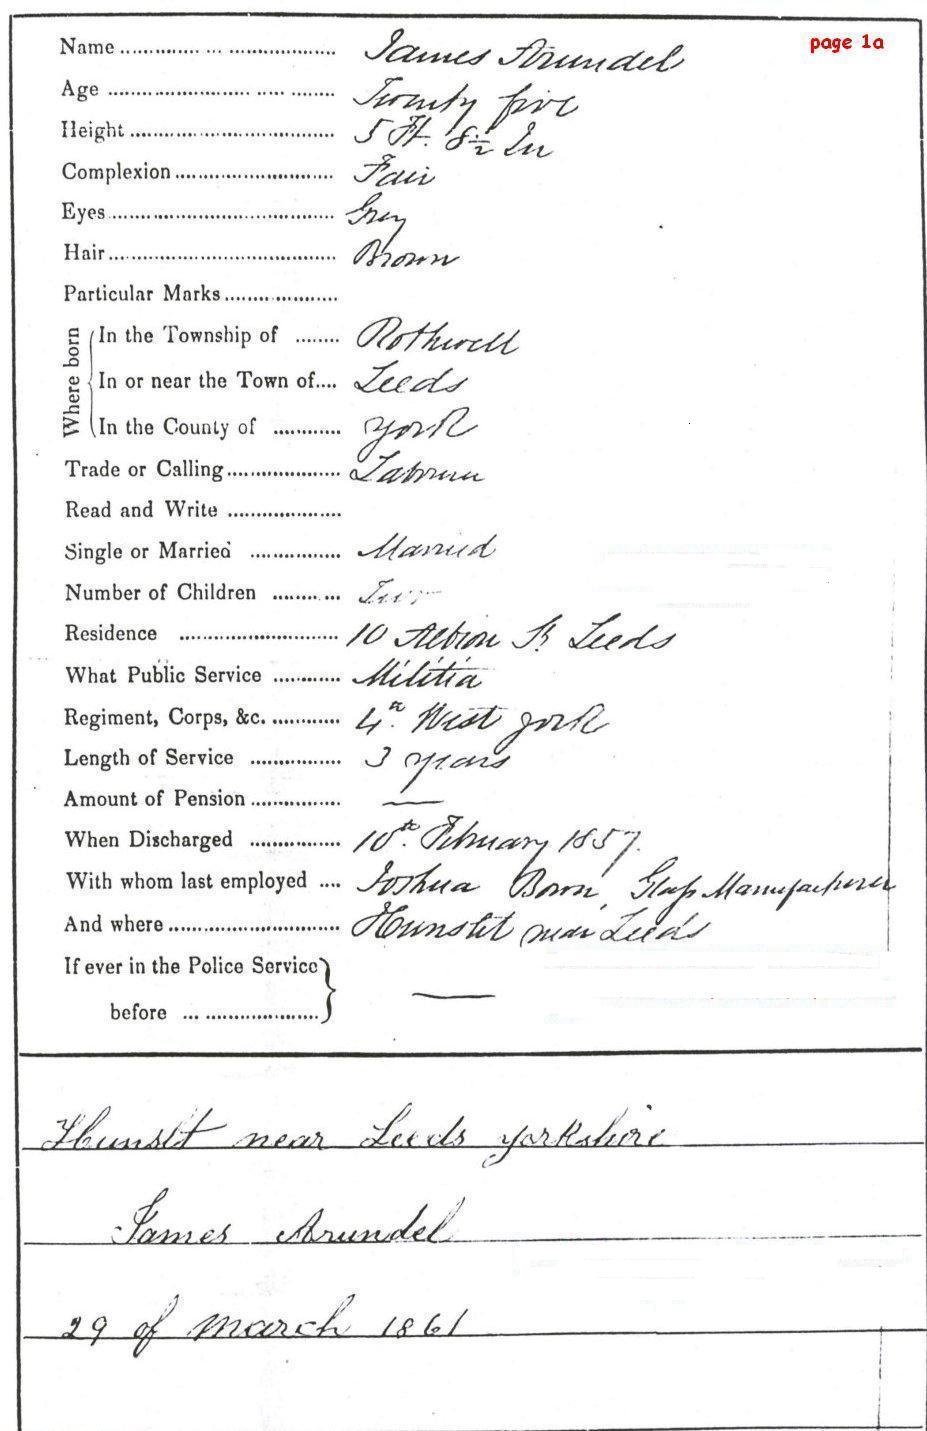 page 1a
Name ........................ James Arundel
Age ........................ Twenty five
Height ........................ 5 Ft. 8½ In
Complexion ........................ Fair
Eyes ........................ Grey
Hair ........................ Brown
Particular Marks ....................
Where born
In the Township of ........ Rothwell
In or near the Town of.... Leeds
In the County of ............ York
Trade or Calling .................... Labourer
Read and Write ....................
Single or Married ................ Married
Number of Children ............ Two
Residence ............................ 10 Albion St Leeds
What Public Service ............ Militia
Regiment, Corps, &c. ............ 4th West York
Length of Service ................ 3 years
Amount of Pension ................ —
When Discharged ................ 10th February 1857.
With whom last employed .... Joshua Bown, Glass Manufacturer
And where .............................. Hunslet near Leeds
If ever in the Police Service
before ... .................... —
Hunslt near Leeds yorkshire
James Arundel
29 of march 1861